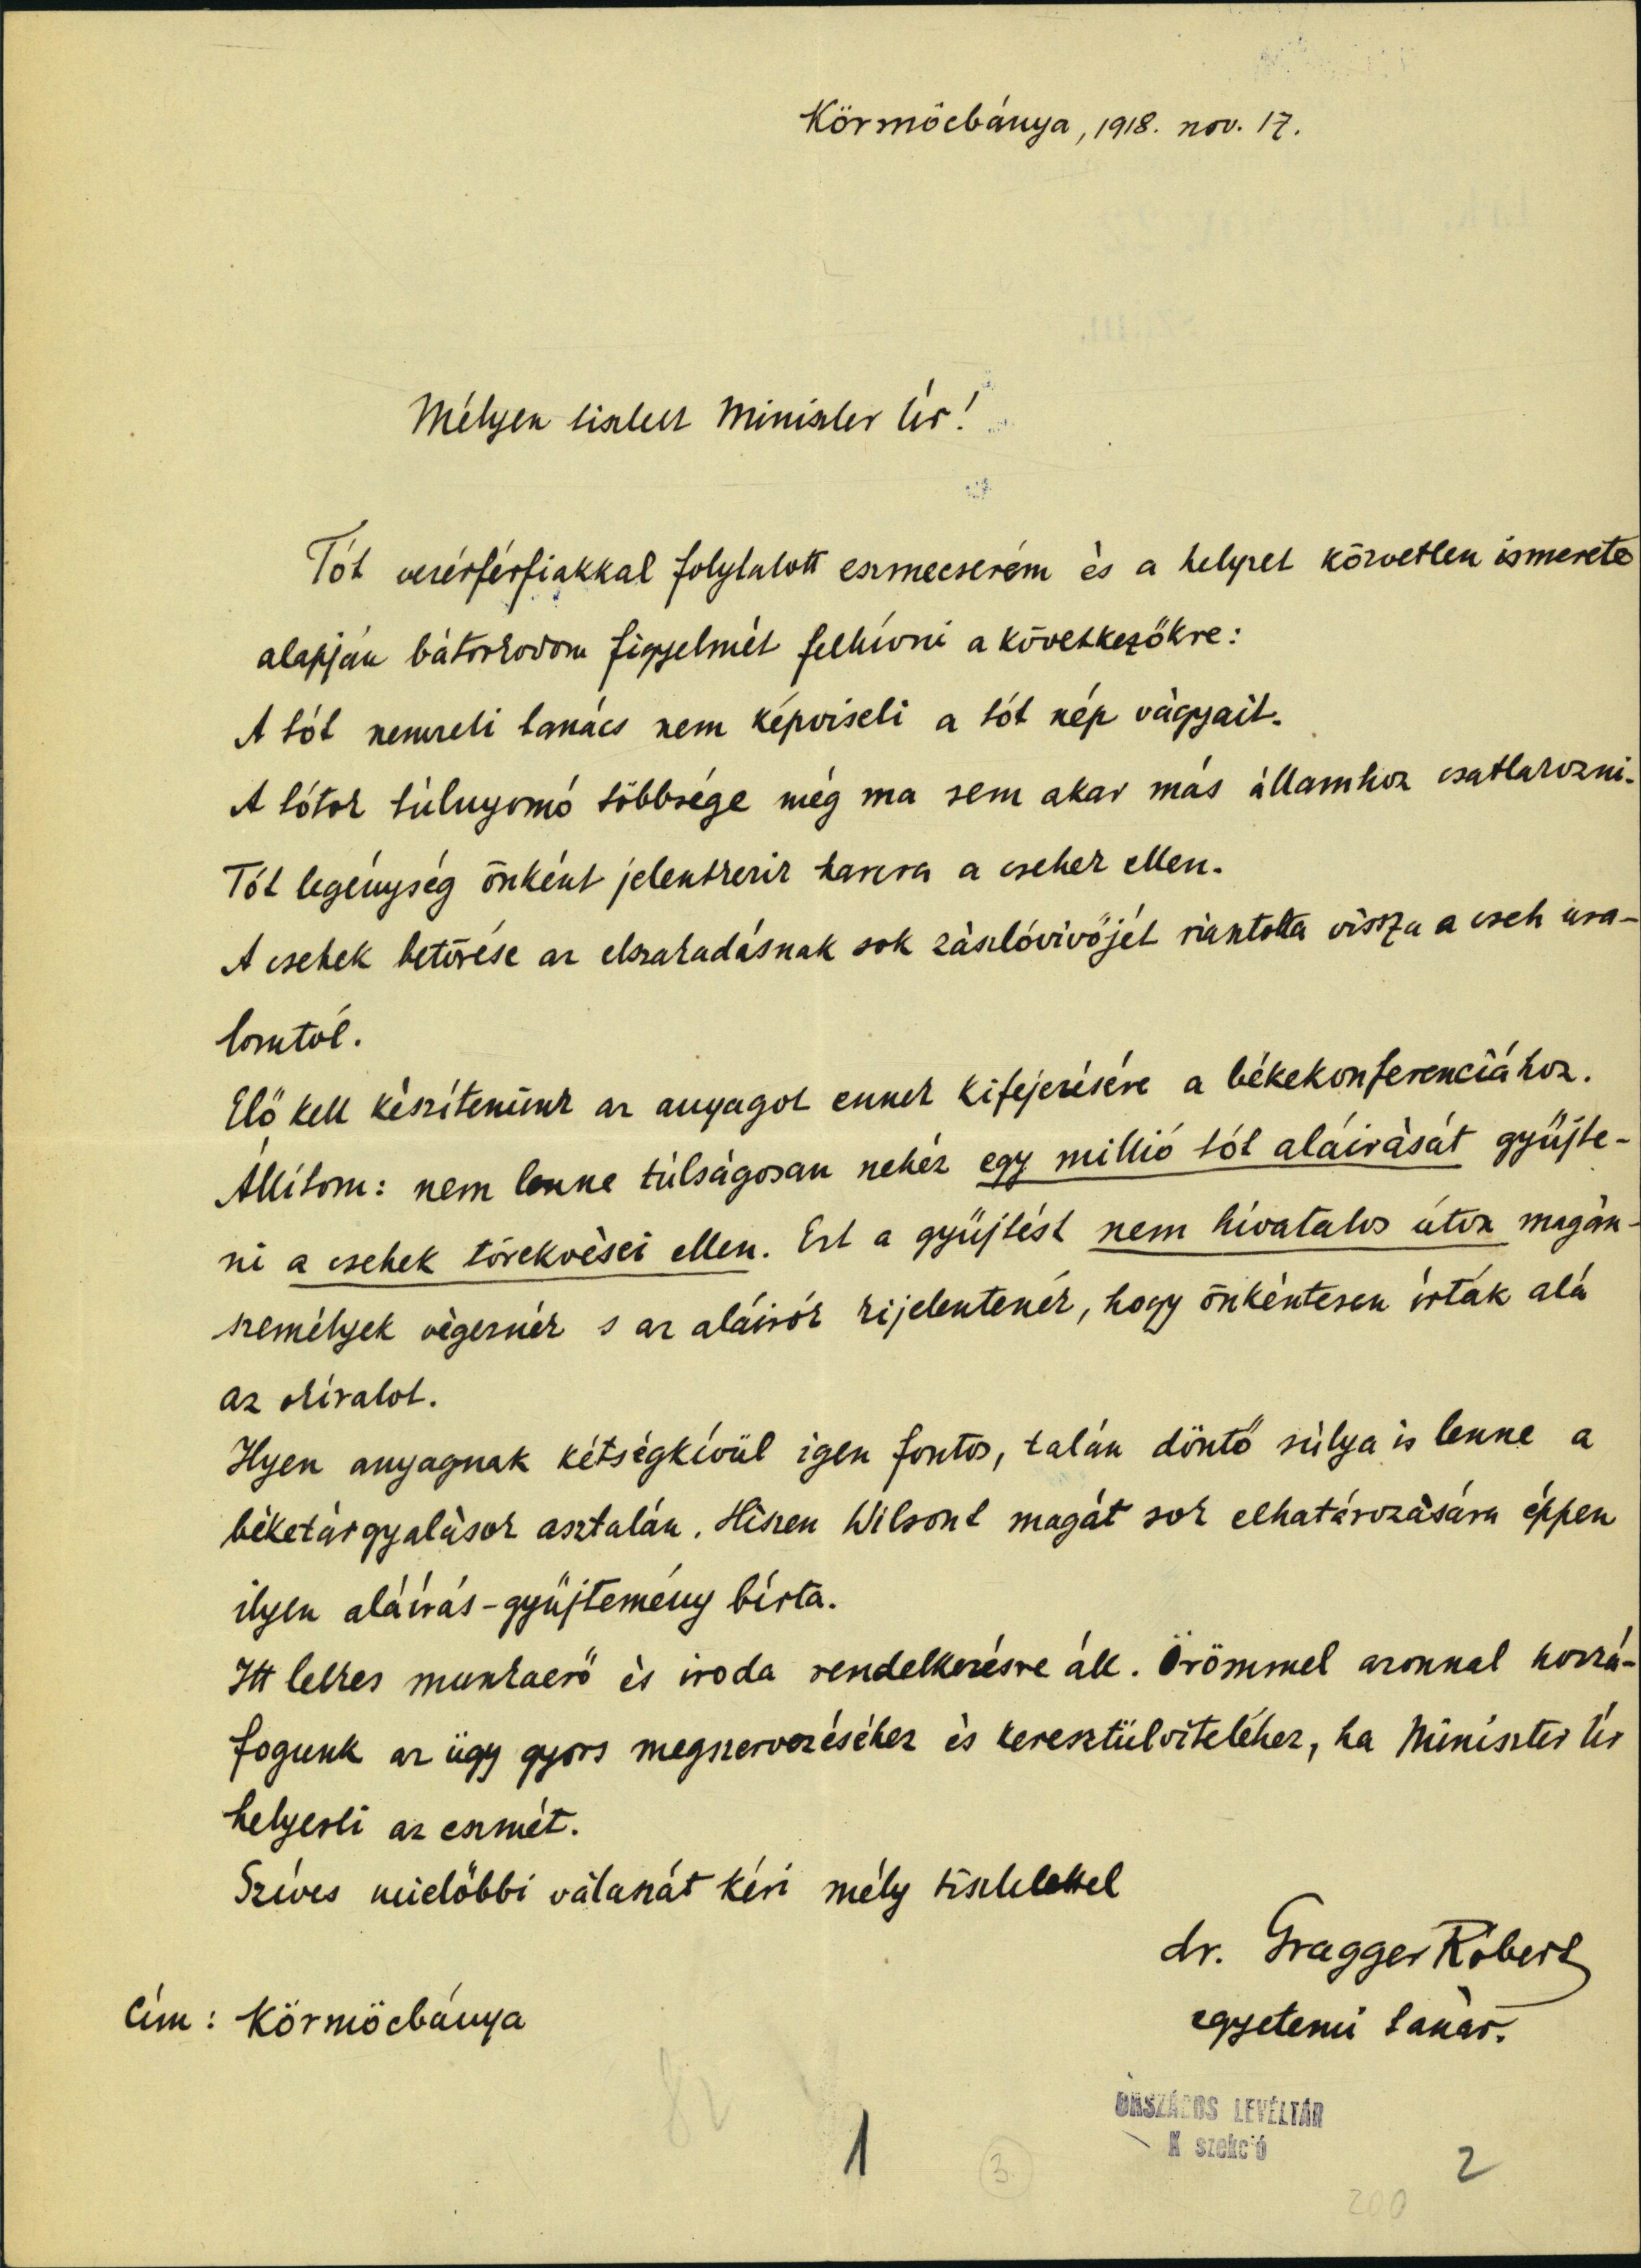 Körmöcbánya, 1918. nov. 17.
Mélyen tisztelt Miniszter Úr!
Tót vezérférfiakkal folytatott eszmecserém és a helyzet közvetlen ismerete
alapján bátorkodom figyelmét felhívni a következőkre:
A tót nemzeti tanács nem képviseli a tót nép vágyait.
A tótok túlnyomó többsége még ma sem akar más államhoz csatlakozni.
Tót legénység önként jelentkezik harcra a csehek ellen.
A csehek betörése az elszakadásnak sok zászlóvivőjét riantotta vissza a cseh ura-
lomtól.
Elő kell készítenünk az anyagot ennek kifejezésére a békekonferenciához.
Állítom: nem lenne túlságosan nehéz egy millió tót aláirását gyüjte-
ni a csehek törekvései ellen. Ezt a gyüjtést nem hivatalos úton magán-
személyek végeznék s az aláirók kijelentenék, hogy önkéntesen írták alá
az okiratot.
Ilyen anyagnak kétségkívül igen fontos, talán döntő súlya is lenne a
béketárgyalások asztalán. Hiszen Wilsont magát sok elhatározására éppen
ilyen aláírás-gyüjtemény bírta.
Itt lelkes munkaerő és iroda rendelkezésre áll. Örömmel azonnal hozzá-
fogunk az ügy gyors megszervezéséhez és keresztülviteléhez, ha Miniszter Úr
helyesli az eszmét.
Szíves mielőbbi válaszát kéri mély tisztelettel
dr. Gragger Róbert
egyetemi tanár.
Cím: Körmöcbánya
ORSZÁGOS LEVÉLTÁR
K szekció
1
3.
2
200